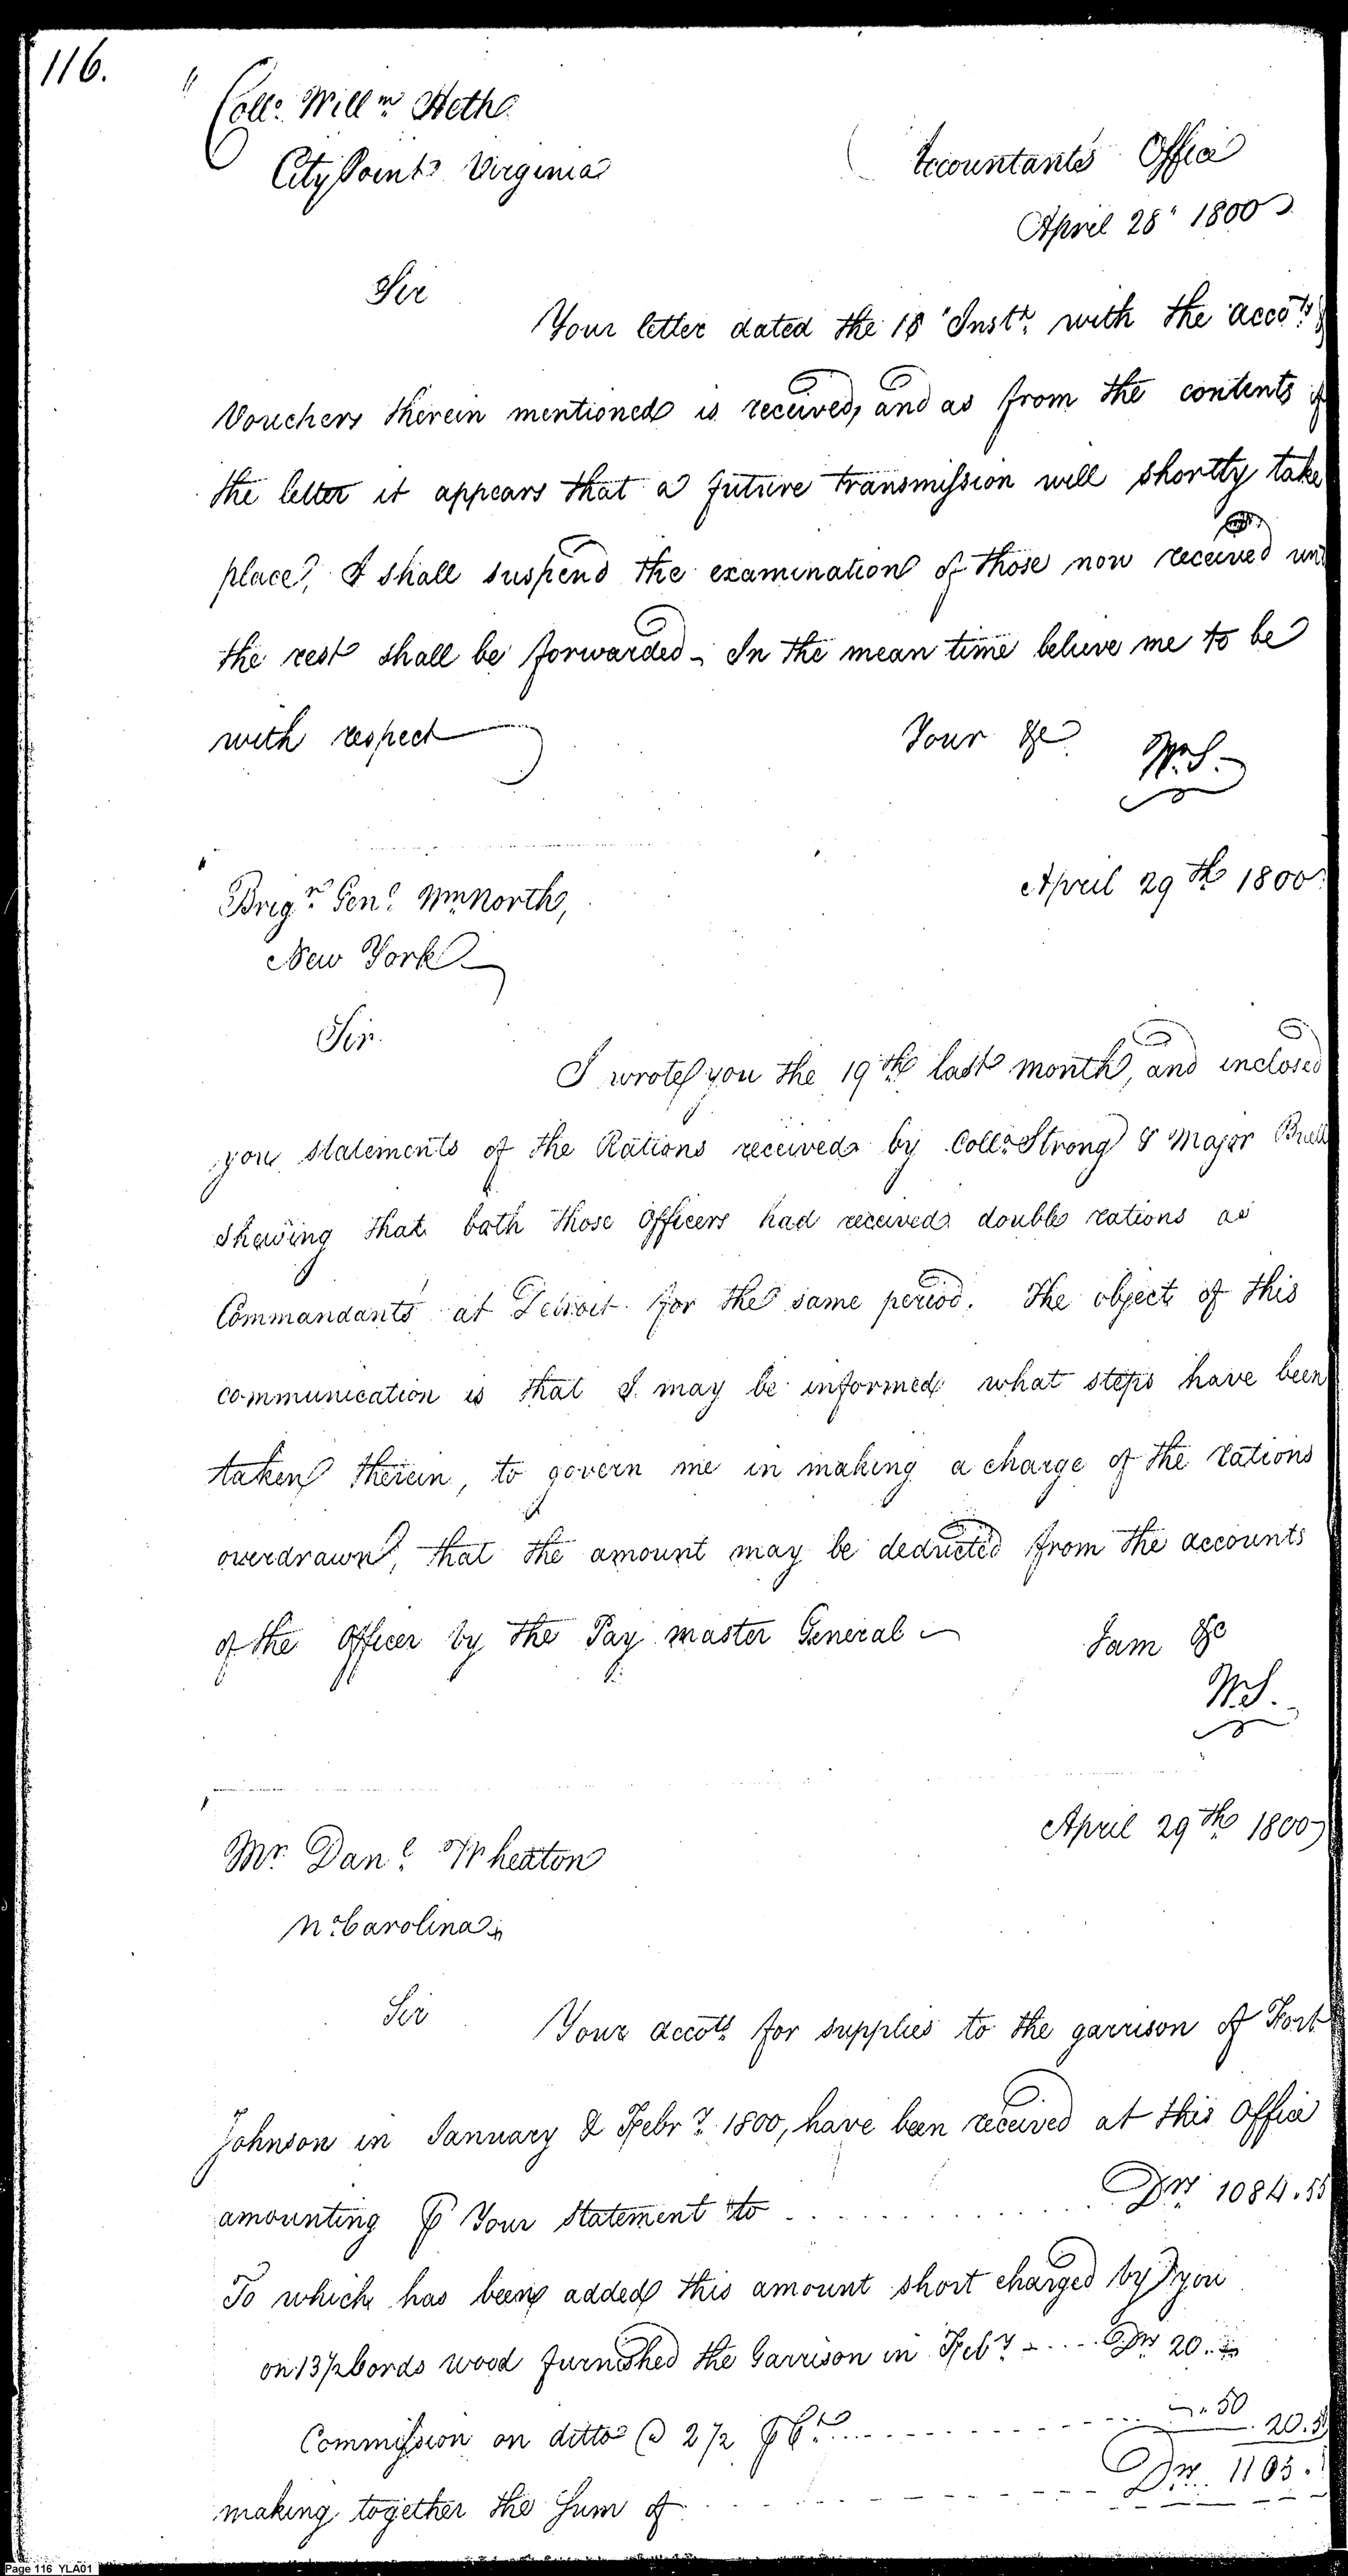 116.
Collo. Willm. Heth
City Point Virginia
Accountants Office
April 28" 1800
Sir
Your letter dated the 18" Instt. with the accots. &
Vouchers therein mentioned is received, and as from the contents of
the letter it appears that a future transmission will shortly take
place, I shall suspend the examination of those now received un
the rest shall be forwarded - In the mean time believe me to be
with respect
Your &c
Wm. S.
April 29th 1800
Brigr. Genl. Wm North,
New York
Sir.
I wrote you the 19th last month, and inclosed
you statements of the Rations received by Collo. Strong & Major Buell
shewing that both those officers had received double rations as
Commandants at Detroit for the same period. The object of this
communication is that I may be informed what steps have been
taken therein, to govern me in making a charge of the rations
overdrawn, that the amount may be deducted from the accounts
of the Officer by the Pay master General -
I am &c
W.S.
April 29th 1800
Mr. Danl. Wheaton
No. Carolina
Sir
Your accots. for supplies to the garrison of Fort
Johnson in January & Febry. 1800, have been received at this Office
amounting ⅌ Your Statement to . . . . . . . . . . Drs. 1084.55
To which has been added this amount short charged by you
on 13½ Cords wood furnished the Garrison in Feby. - . . . . Drs 20..
Commission on ditto @ 2½ ⅌ Ct. . . . . - - - - - - ". 50
20.5
making together the Sum of . . - - - - - - Drs. 1105.
Page 116 YLA01